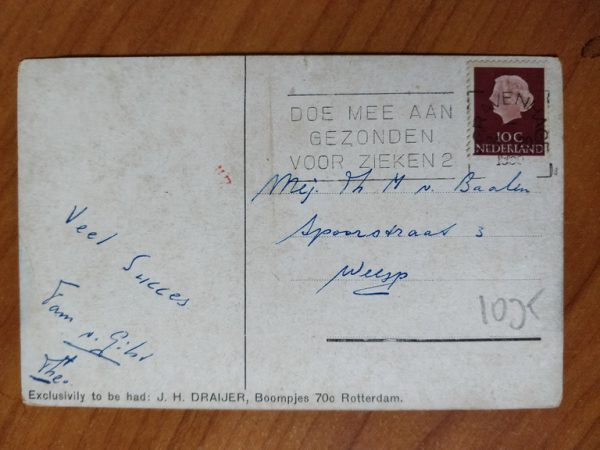 DOE MEE AAN
GEZONDEN
VOOR ZIEKEN 2
10 C
NEDERLAND
Mej. Th M v. Baalen
Spoorstraat 3
Weesp
Veel Succes
Fam
Theo
Exclusivily to be had: J. H. DRAIJER, Boompjes 70c Rotterdam.